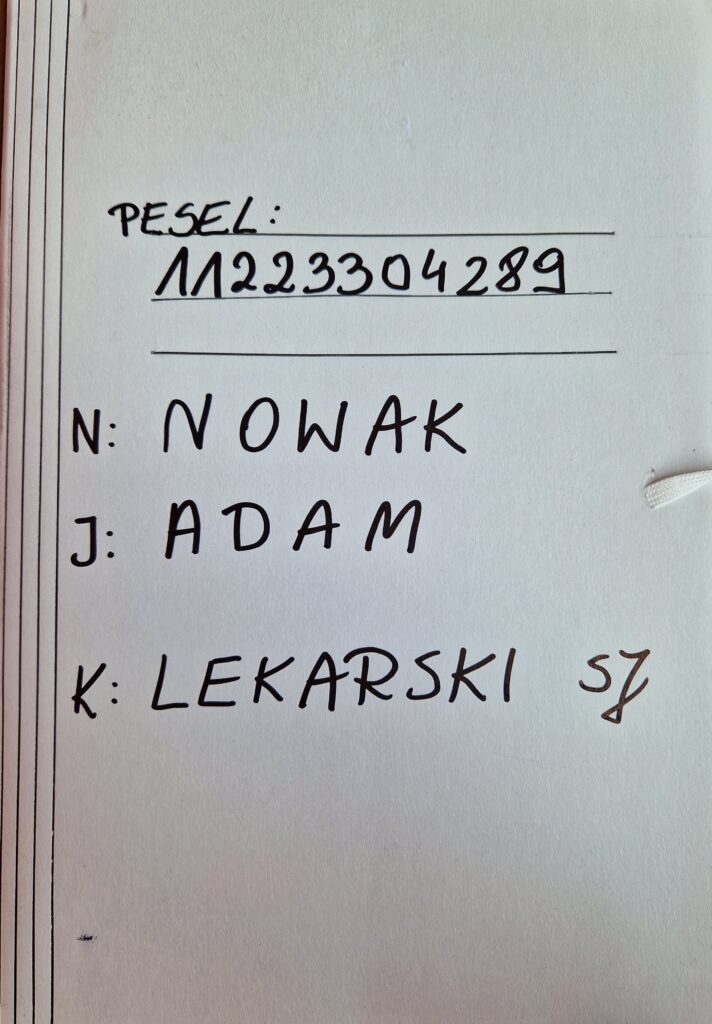 PESEL:
11223304289
N: NOWAK
J: ADAM
K: LEKARSKI SJ